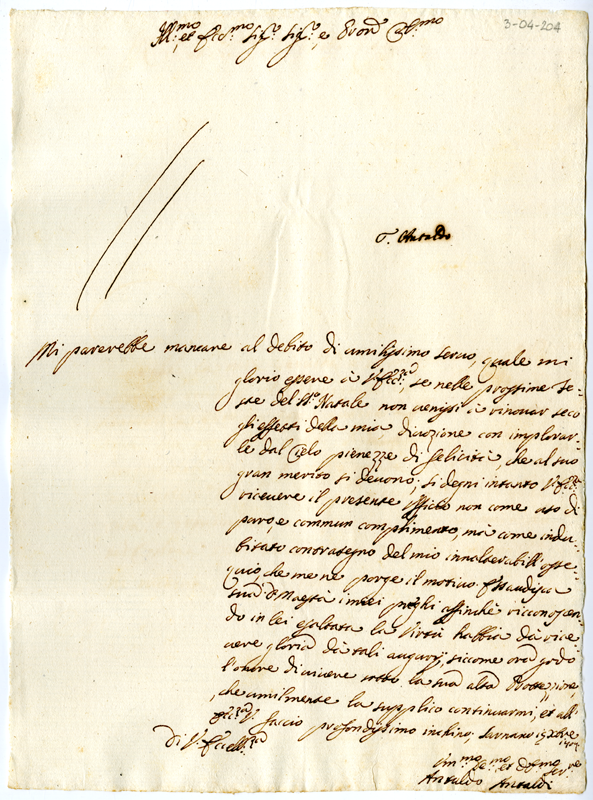 3-04-204
Ill.mo et Ecc.mo Sig.r Sig.r, e Pron Col.mo
Antaldo
Mi parerebbe mancare al debito di umilissimo servo, quale mi
glorio essere à V. Ecc.za, se nelle prossime fe-
ste del S.to Natale non venissi à rinovar seco
gli effetti della mia divozione con implorar-
le dal Cielo pienezze di felicità, che al suo
gran merito si devono; si degni intanto V. Ecc.za
ricevere il presente offitio non come atto di
puro, e commun complimento, mà come indu-
bitato contrasegno del mio inalterabill'osse-
quio, che me ne porge il motivo. Essaudisca
Sua D. Maestà i miei prieghi affinchè riconoscen-
do in lei esaltata la Virtù habbia da rice-
vere gloria da tali augurÿ, siccome ora godo
l'onore di vivere sotto la sua alta Protezione
, che umilmente la supplico continuarmi, et all'
Ecc.za V. faccio profondissimo inchino, Surnano 19 Xbre
Di V. Eccell.za
Um.mo De.mo et Ob.mo Ser.re
Antaldo Antaldi